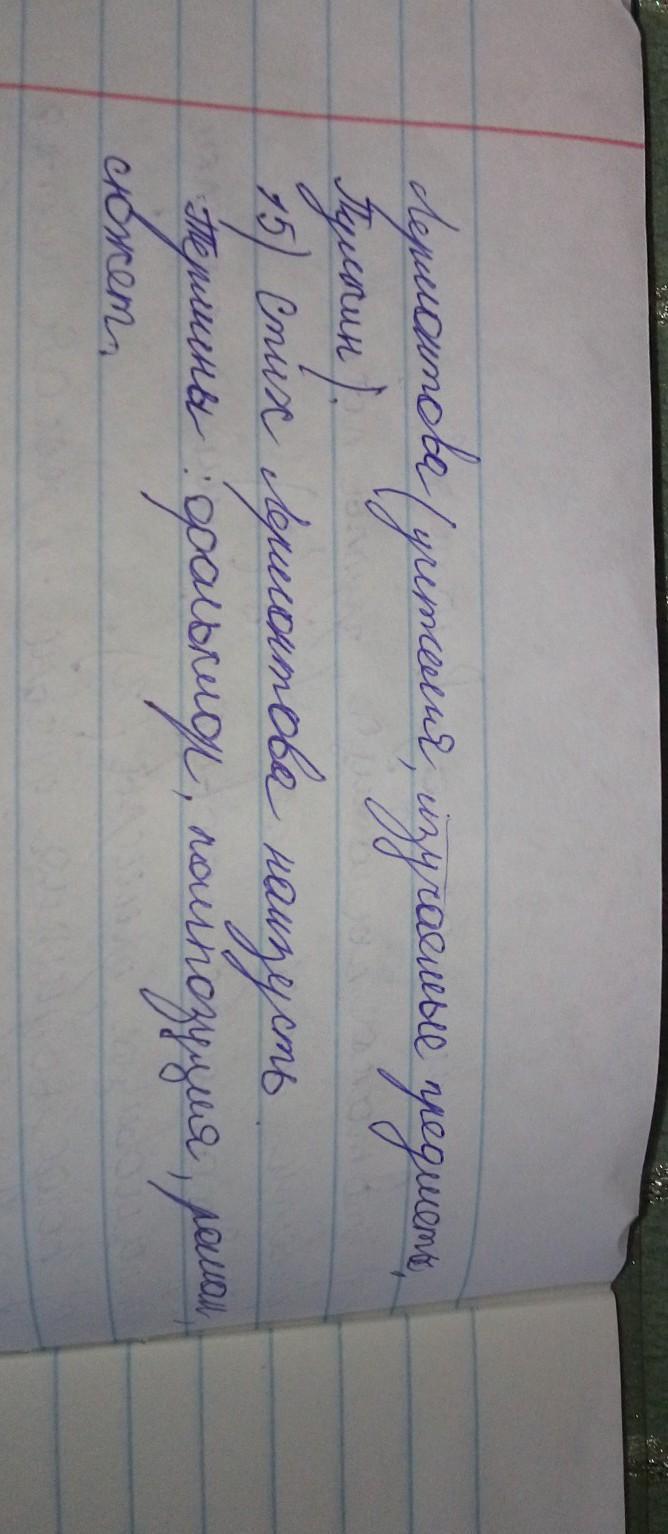 Лермонтова (учителя, изучаемые предметы,
Пушкин).
15) Стих Лермонтова наизусть
Термины: фольклор, композиция, роман,
сюжет.